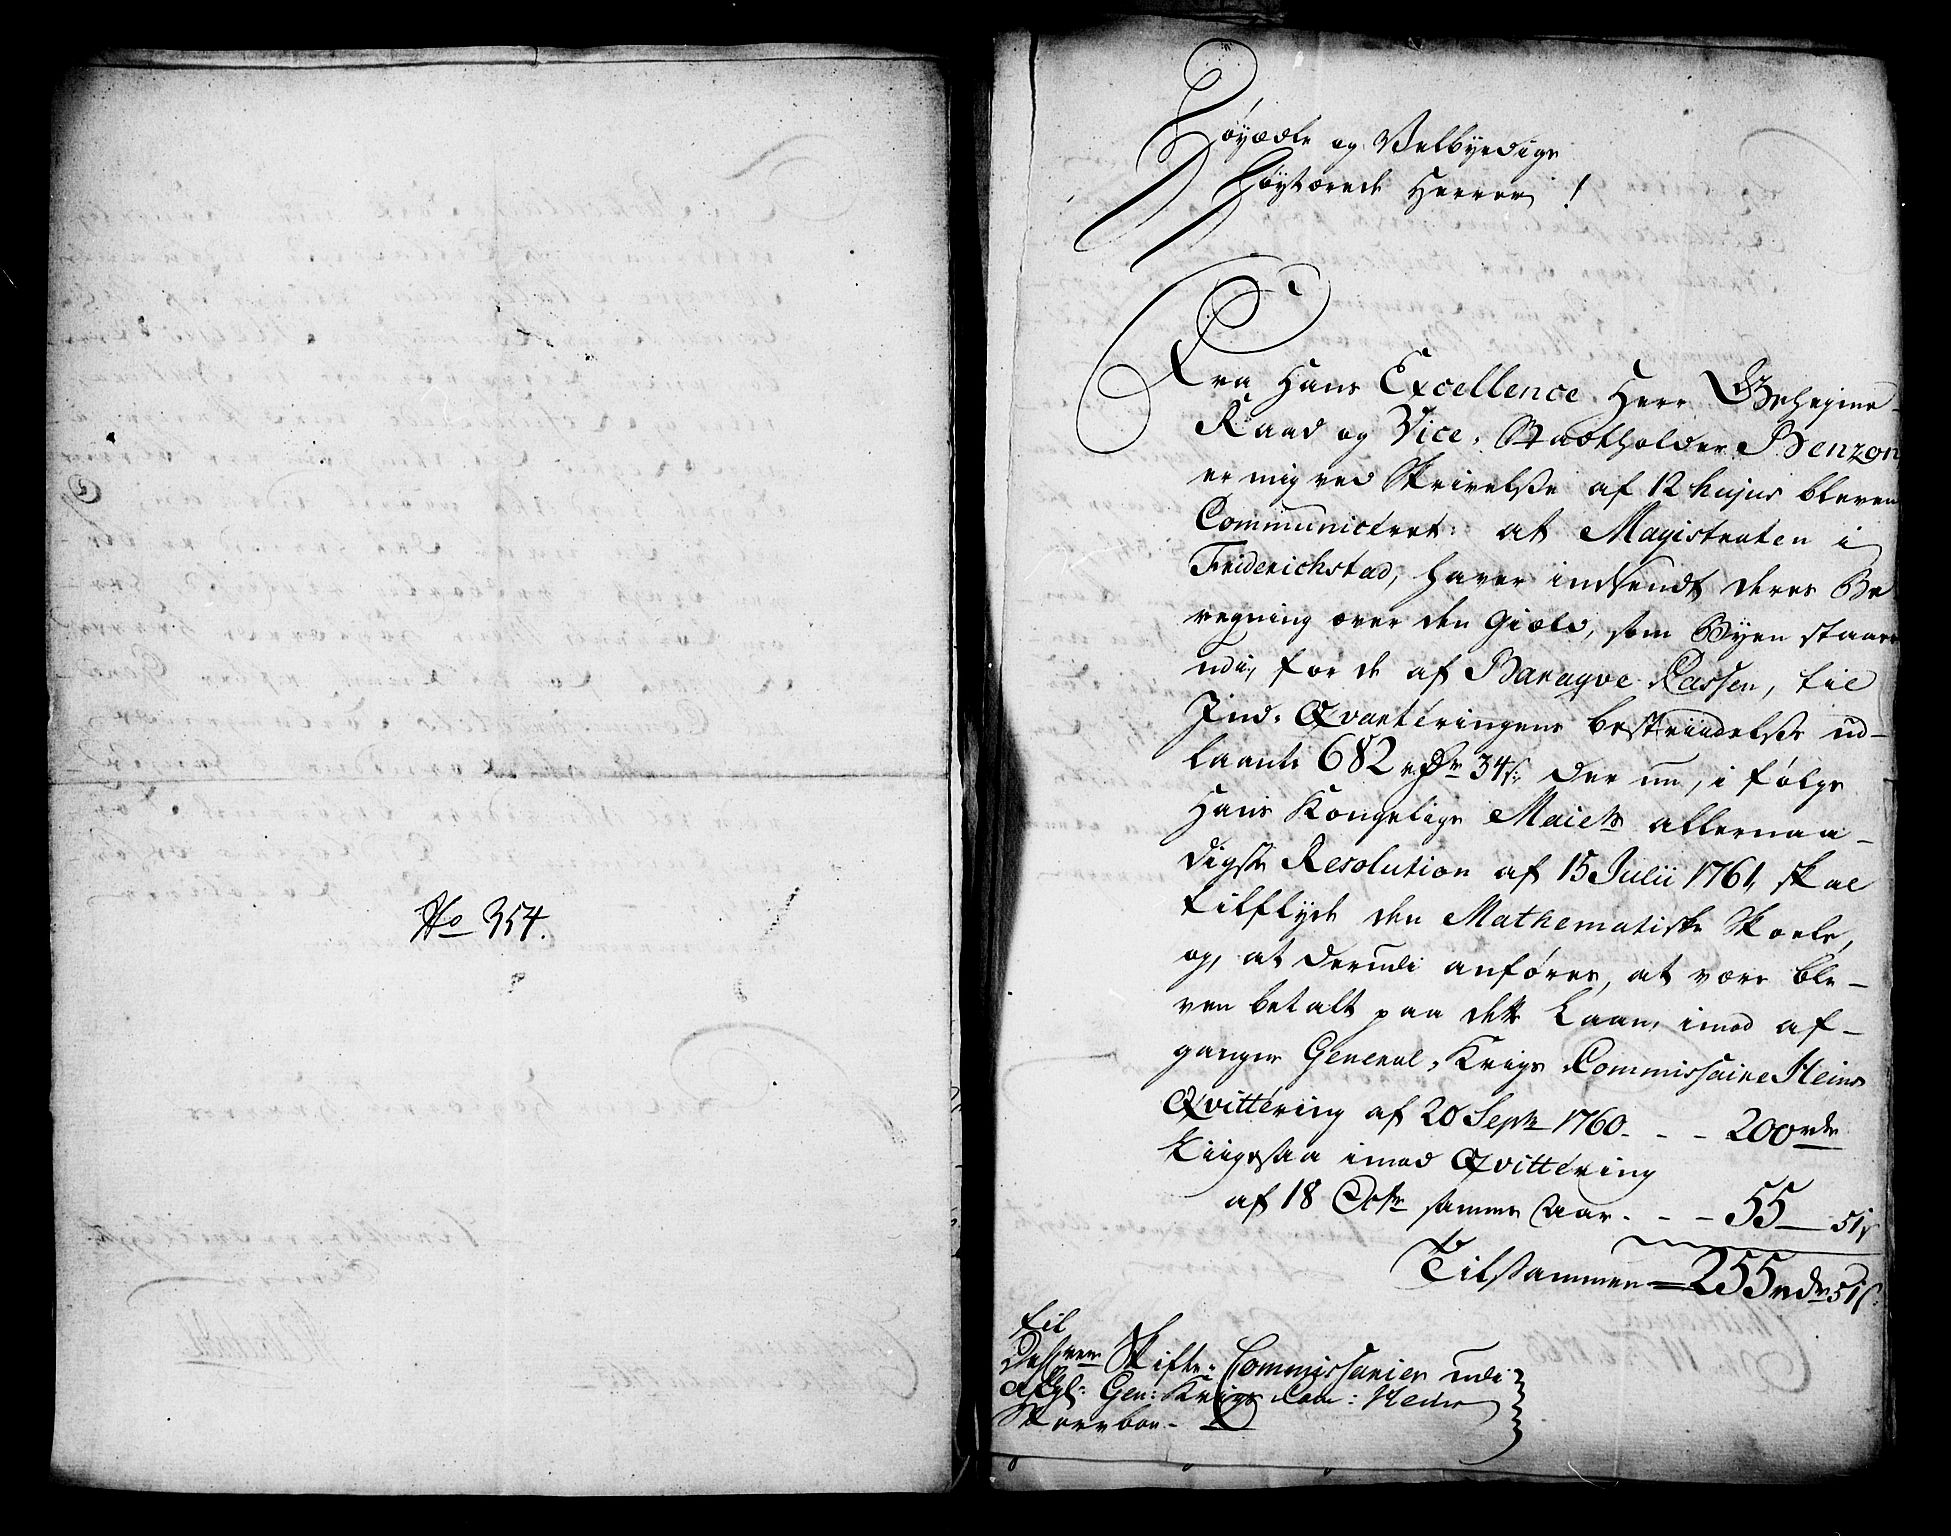 No 354.
Høyædle og Velbyrdige
Høystærede Herrer!
Fra Hans Excellence Herr Geheime-
Raad og Vice-Stadtholder Benzon
er mig ved Skrivelse af 12 hujus bleven
Communiceret: at Magistraten i
Friderichstad, haver indsendt deres Be
regning over den Giæld, som Byen staar
udi, for de af Baraqve Cassen, til
Ind-Qvarteringens bestriidelse ud-
laante 682 rdr 34 s: der nu, i følge
Hans Kongelige Maiets allernaa-
digste Resolution af 15 Julii 1761, skal
tilflyde den Mathematiske Skoele,
og, at derudi anføres, at være ble-
ven betalt paa dette Laan, imod af-
gangne General-Krigs Commissaire Heins
Qvittering af 20 Septr 1760. - - 200 rdr
Liigesaa imod Qvittering
af 18 Octr samme Aar - - - 55 - 51 s
Tilsammen = 255 rdr 51 s:
Til
Skifte-Commissarier udi
afgl: Gen: Krigs Com: Heins
Stervboe.